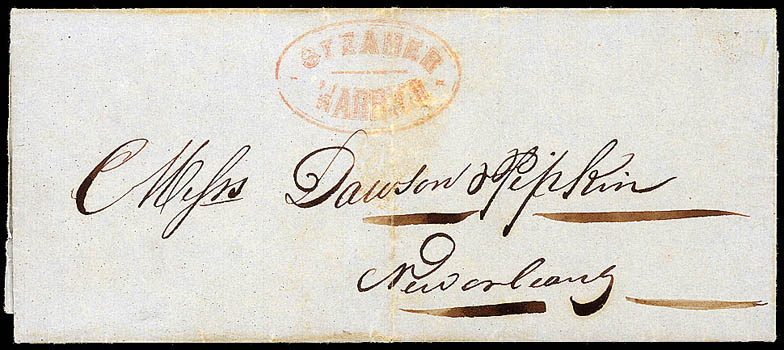 STEAMER
WARRIOR
Messrs Dawson & Pipkin
New orleans